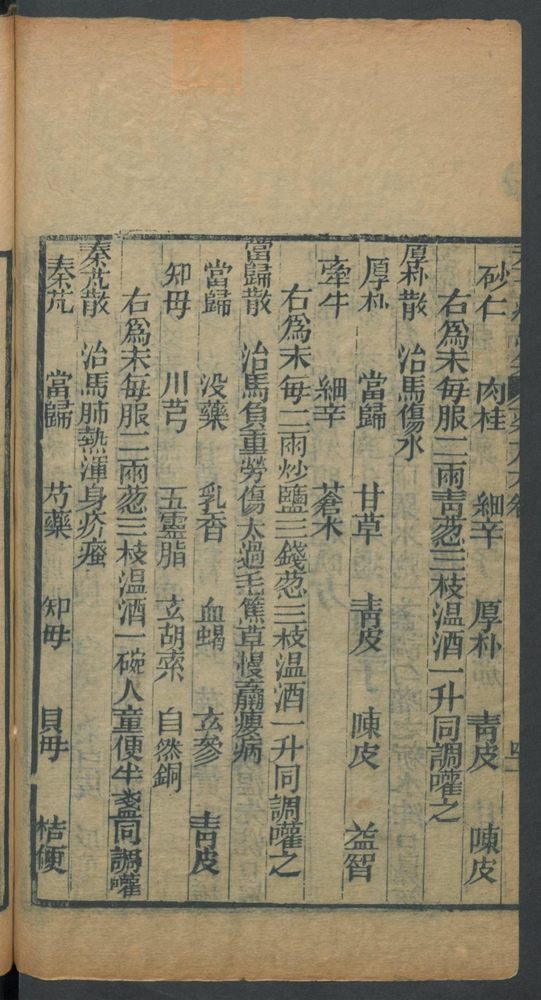 砂仁 肉桂 細辛 厚朴 青皮 陳皮
右為末每服二兩青葱三枝温酒一升同調嚾之
厚朴散 治馬傷水
厚朴 當歸 甘草 青皮 陳皮 益智
牽牛 細辛 蒼术
右為末每二兩炒鹽三錢葱三枝温酒一升同調嚾之
當歸散 治馬負重勞傷太過毛焦草慢羸瘦病
當歸 没藥 乳香 血蝎 玄參 青皮
知母 川芎 五靈脂 玄胡索 自然銅
右為末每服二兩葱三枝温酒一碗人童便半盞同調嚾
秦艽散 治馬肺熱渾身疥瘙
秦艽 當歸 芍藥 知母 貝母 桔梗